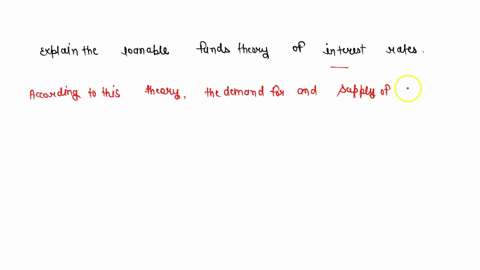 Explain the loanable funds theory of interest rates.
According to this theory, the demand for and supply of